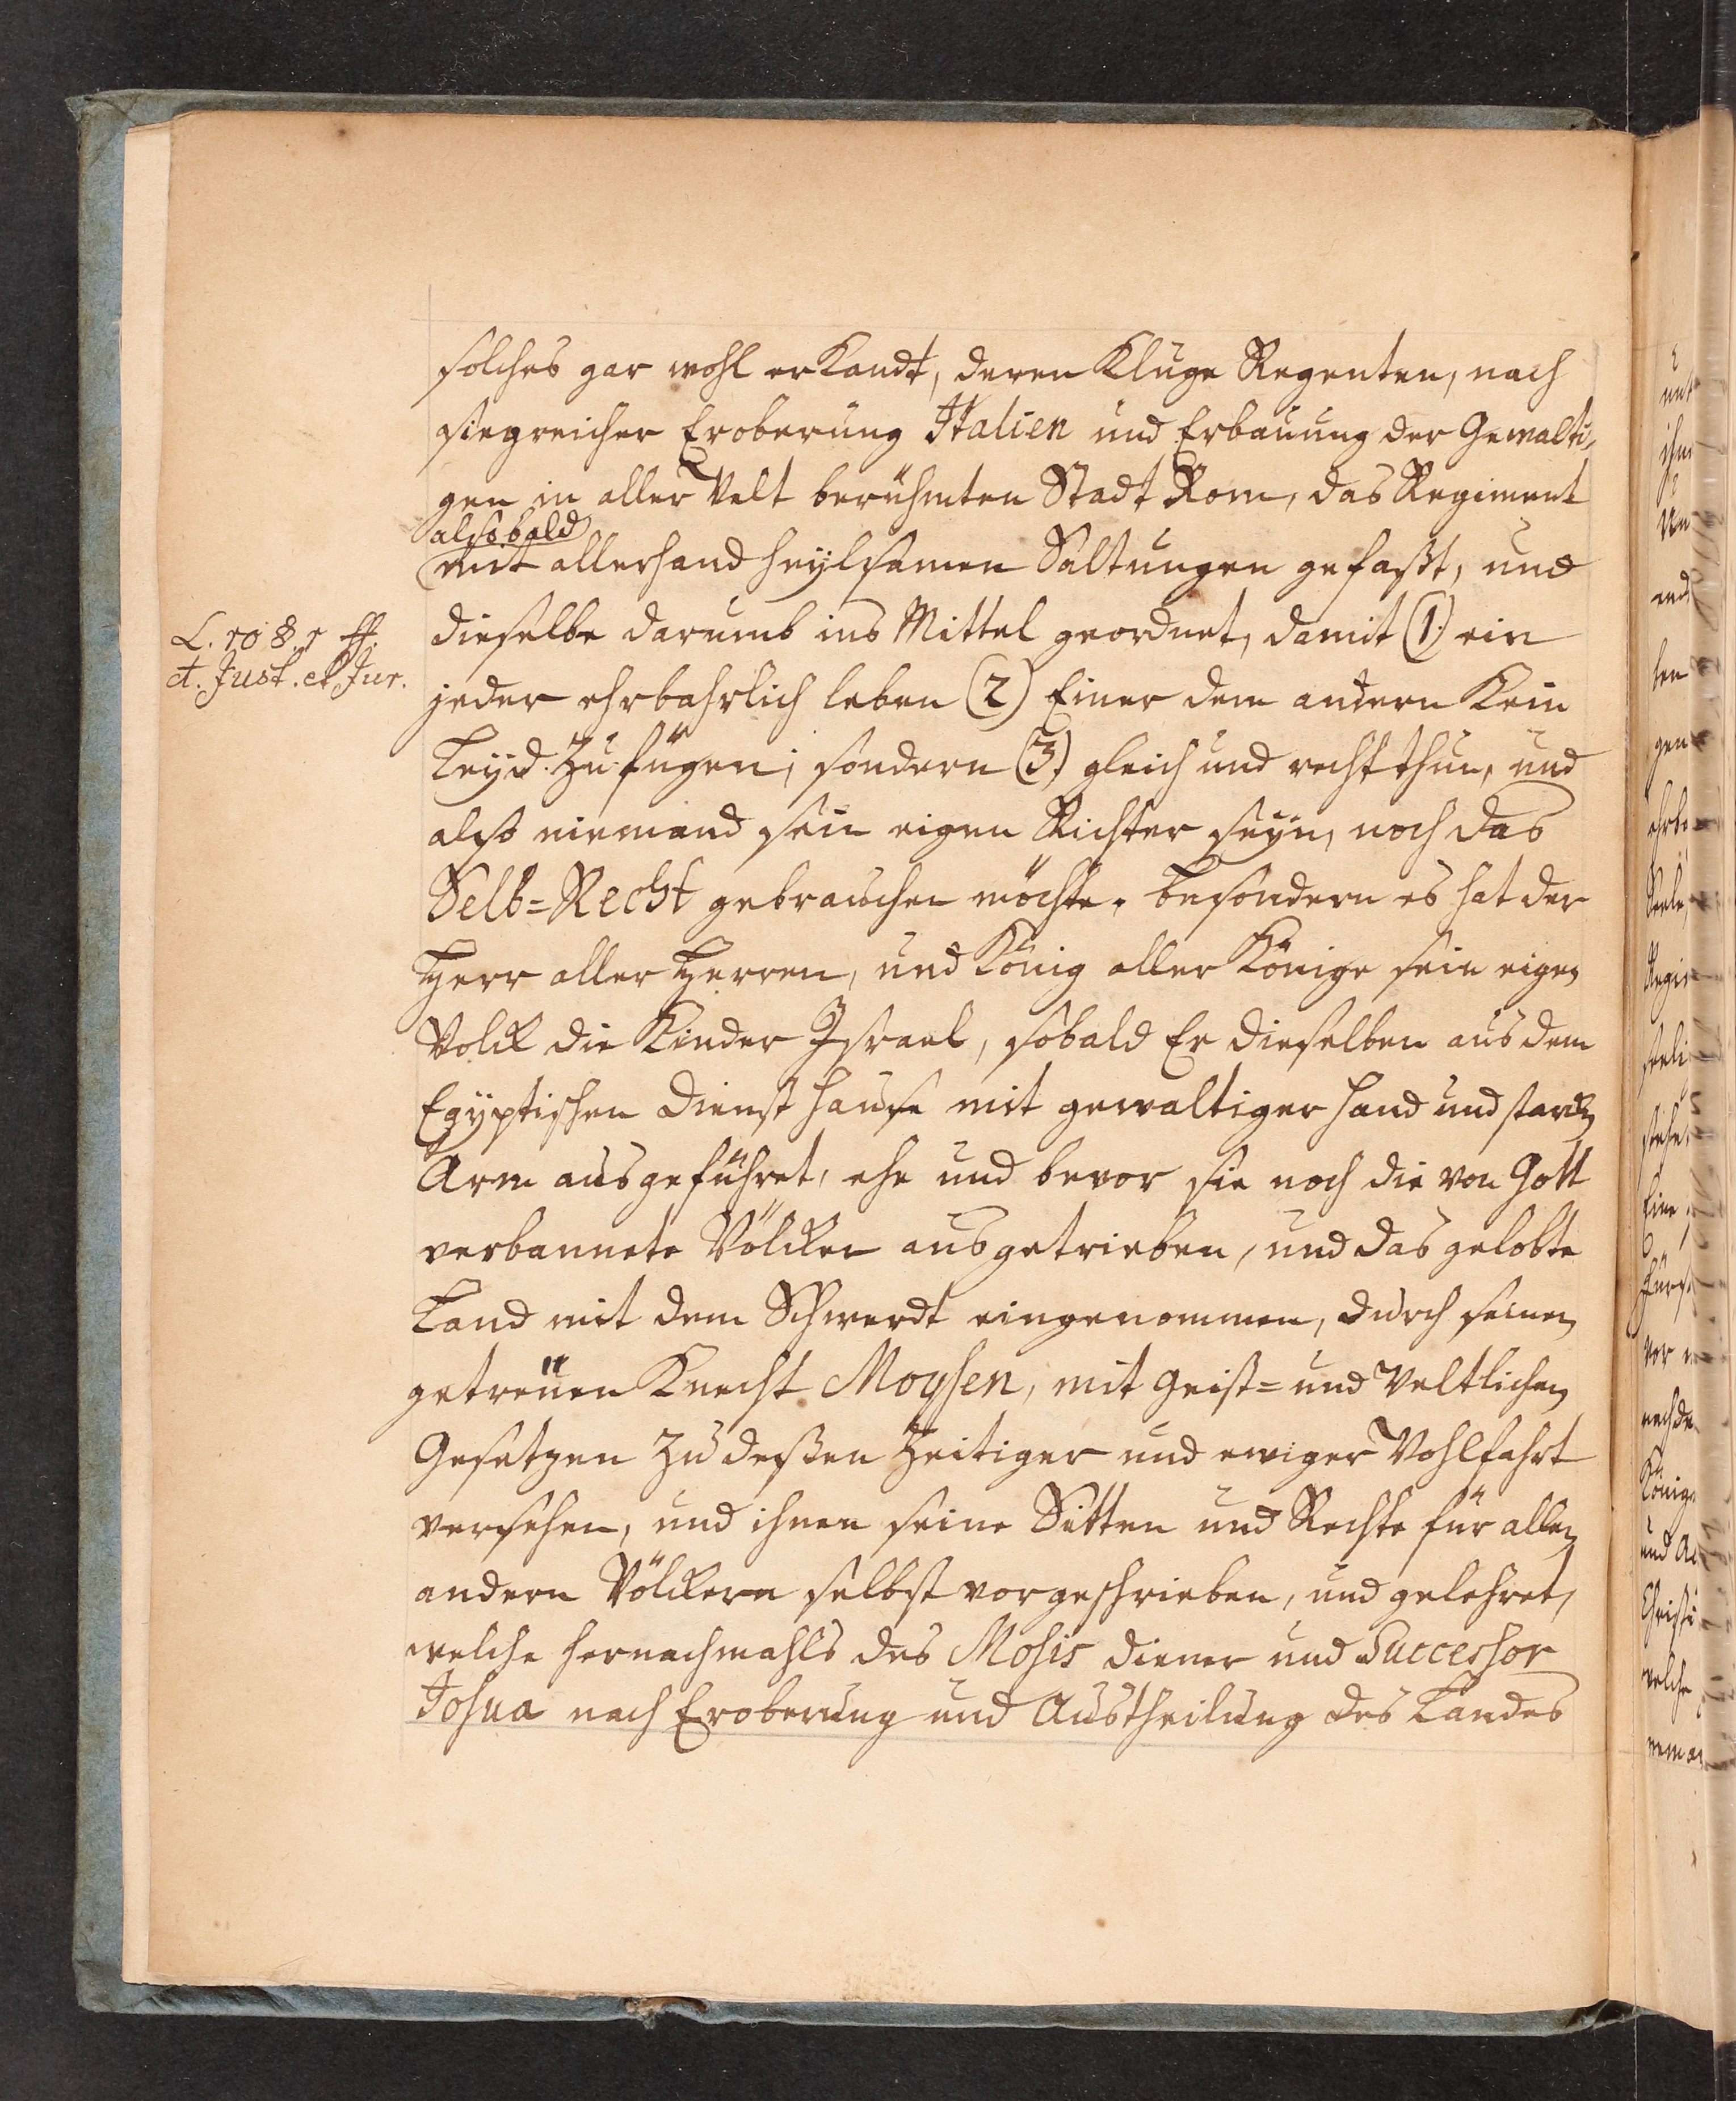 solches gar wohl erkandt, deren kluge Regenten, nach
siegreicher Eroberung Italien und Erbauung der Gewalti,
gen in aller Welt berühmten Stadt Rom, das Regiment
alsobald
mit allerhand heylsamen Saltungen gefaßt, und
L. 10 § 1 ff.
d. Just. et Jur.
dieselbe darumb ins Mittel geordnet, damit (1.) ein
jeder ehrbahrlich leben (2) Einer dem andern kein
Leyd zufügen; sondern (3.) gleich und recht thun, und
also niemand sein eigen Richter seyn, noch das
Selb=Recht gebrauchen möchte. besondern es hat der
Herr aller Herren, und König aller Könige sein eigen
Volck die Kinder Israel, sobald Er dieselben aus dem
Egyptischen Diensthause mit gewaltiger Hand und starcken
Arm ausgeführet, ehe und bevor sie noch die von Gott
verbannete Völcker ausgetrieben, und das gelobte
Land mit dem Schwerdt eingenommen, durch seinen
getreüen Knecht Moysen, mit Geist= und Weltlichen
Gesetzen zu deßen Zeitiger und ewiger Wohlfahrt
versehen, und ihnen seine Sitten und Rechte für allen
andern Völckern selbst vorgeschrieben, und gelehret,
welche hernachmahls des Mosis Diener und Successor
Josua nach Eroberung und Austheilung des Landes